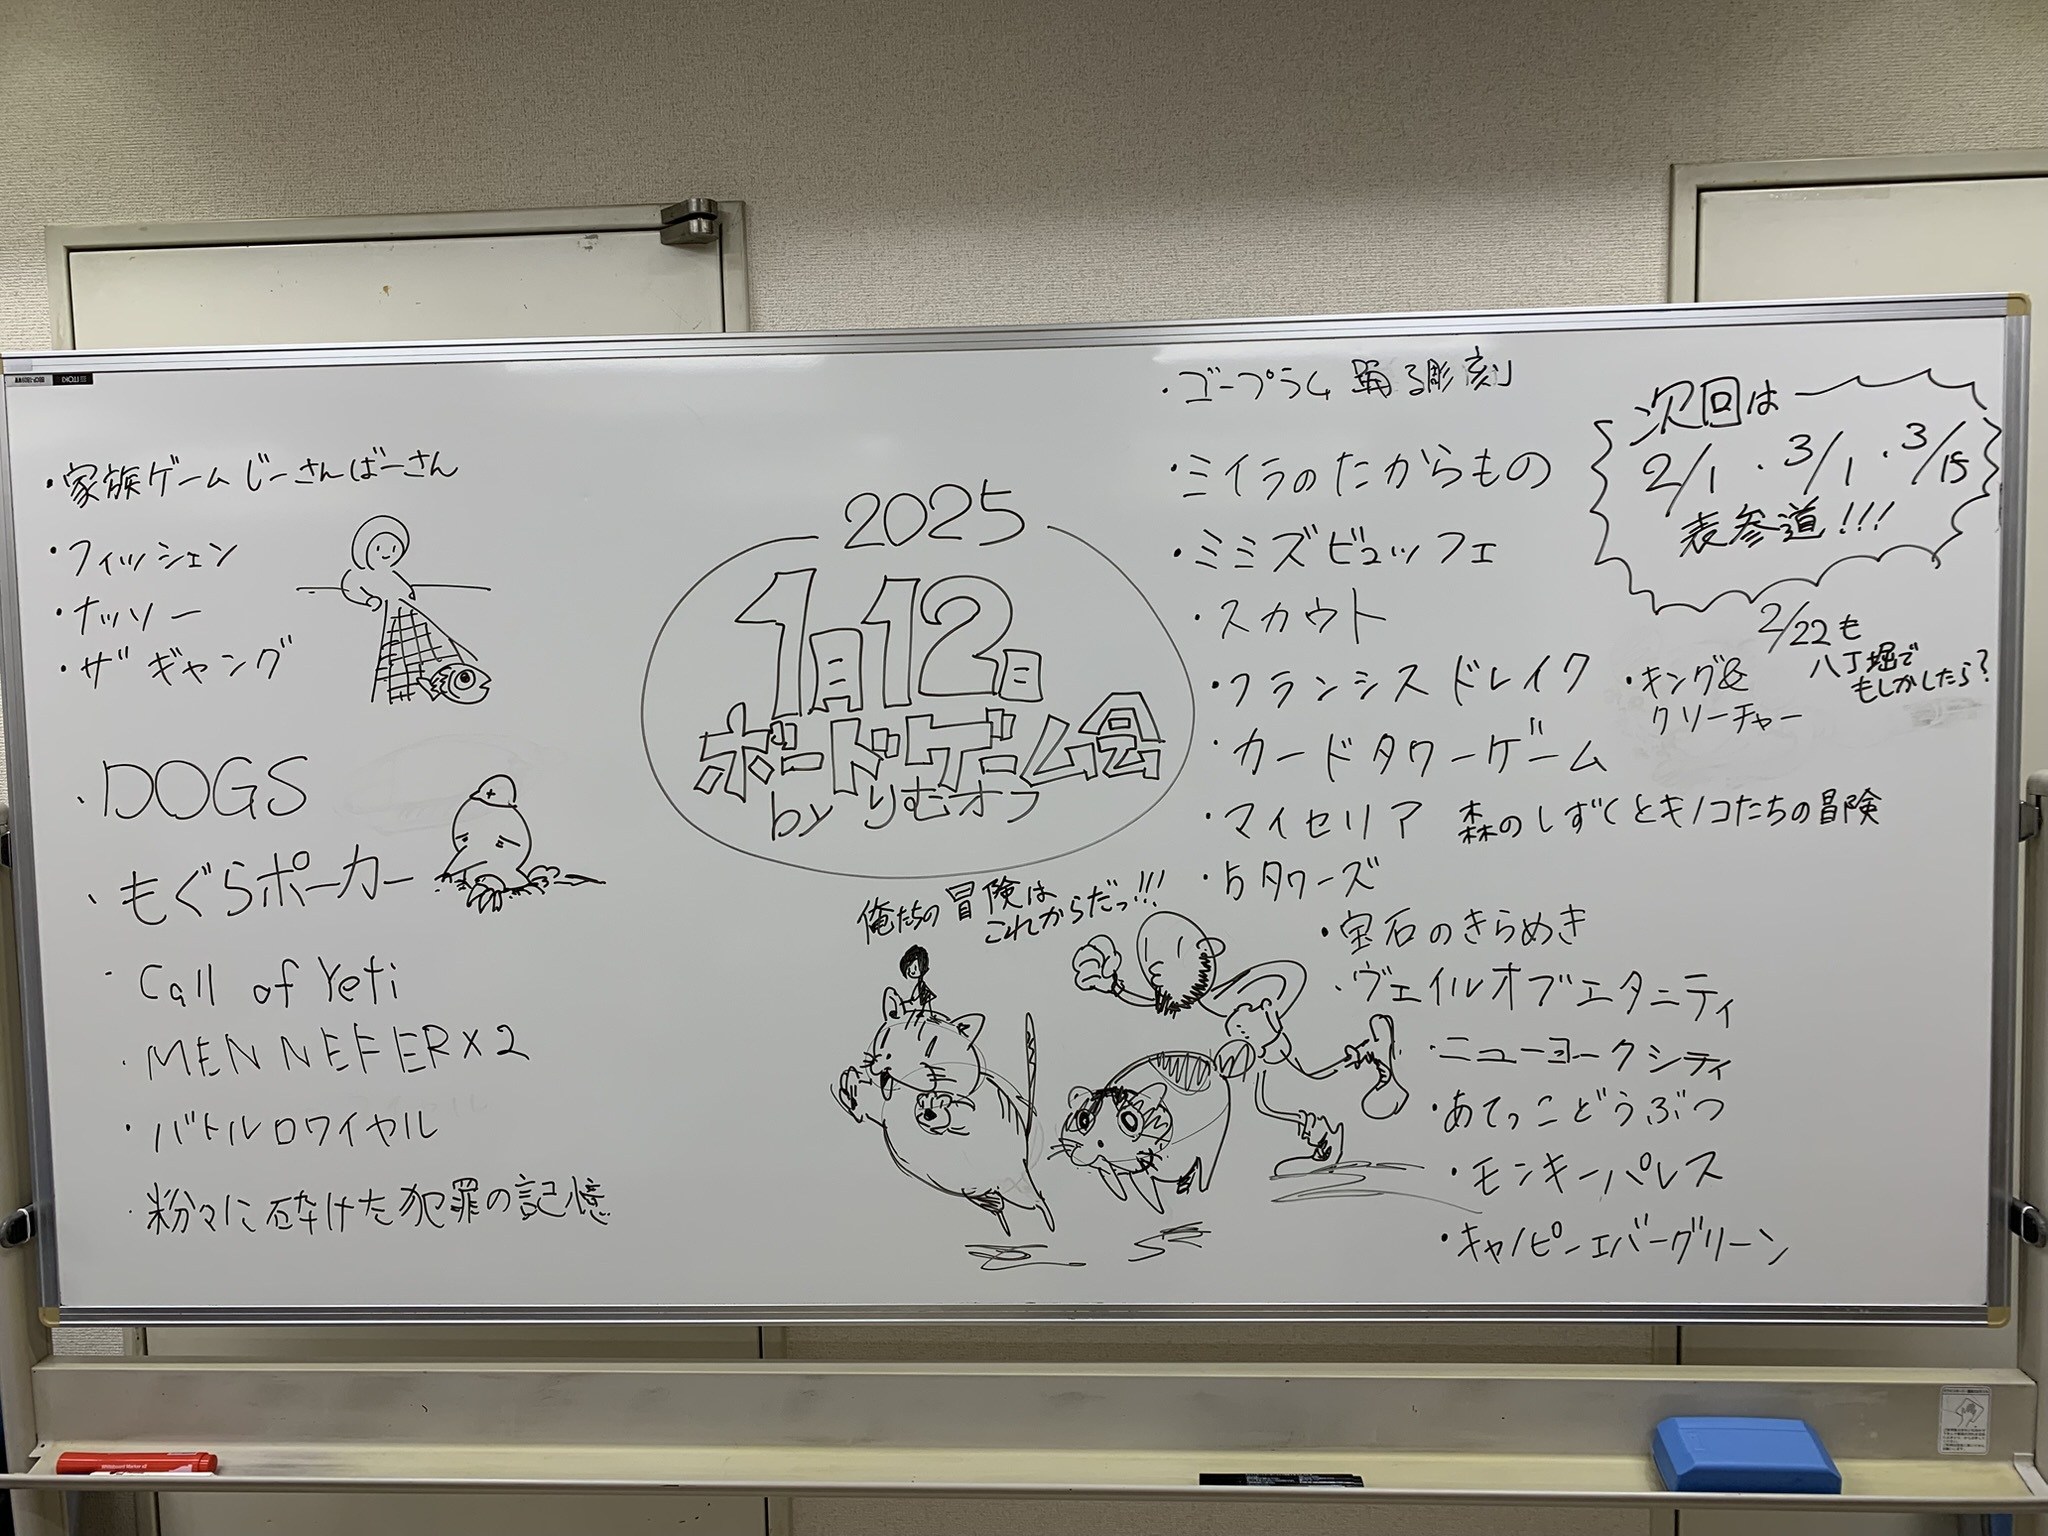 ・家族ゲームじーさんばーさん
・フィッシェン
・ナッソー
・ザ ギャング
・DOGS
・もぐらポーカー
・Call of Yeti
・MEN NEFER×2
・バトルロワイヤル
・粉々に砕けた犯罪の記憶
2025
1月12日
ボードゲーム会
by りむオフ
俺たちの冒険は
これからだっ!!!
・ゴープラム 踊る彫刻
・ミイラのたからもの
・ミミズビュッフェ
・スカウト
・フランシスドレイク
・カードタワーゲーム
・マイセリア 森のしずくとキノコたちの冒険
・5タワーズ
・宝石のきらめき
・ヴェイルオブエタニティ
・ニューヨークシティ
・あてっこどうぶつ
・モンキーパレス
・キャノピーエバーグリーン
・キング&
クリーチャー
次回は
2/1・3/1・3/15
表参道!!!
2/22も
八丁堀で
もしかしたら?
Whiteboard Marker